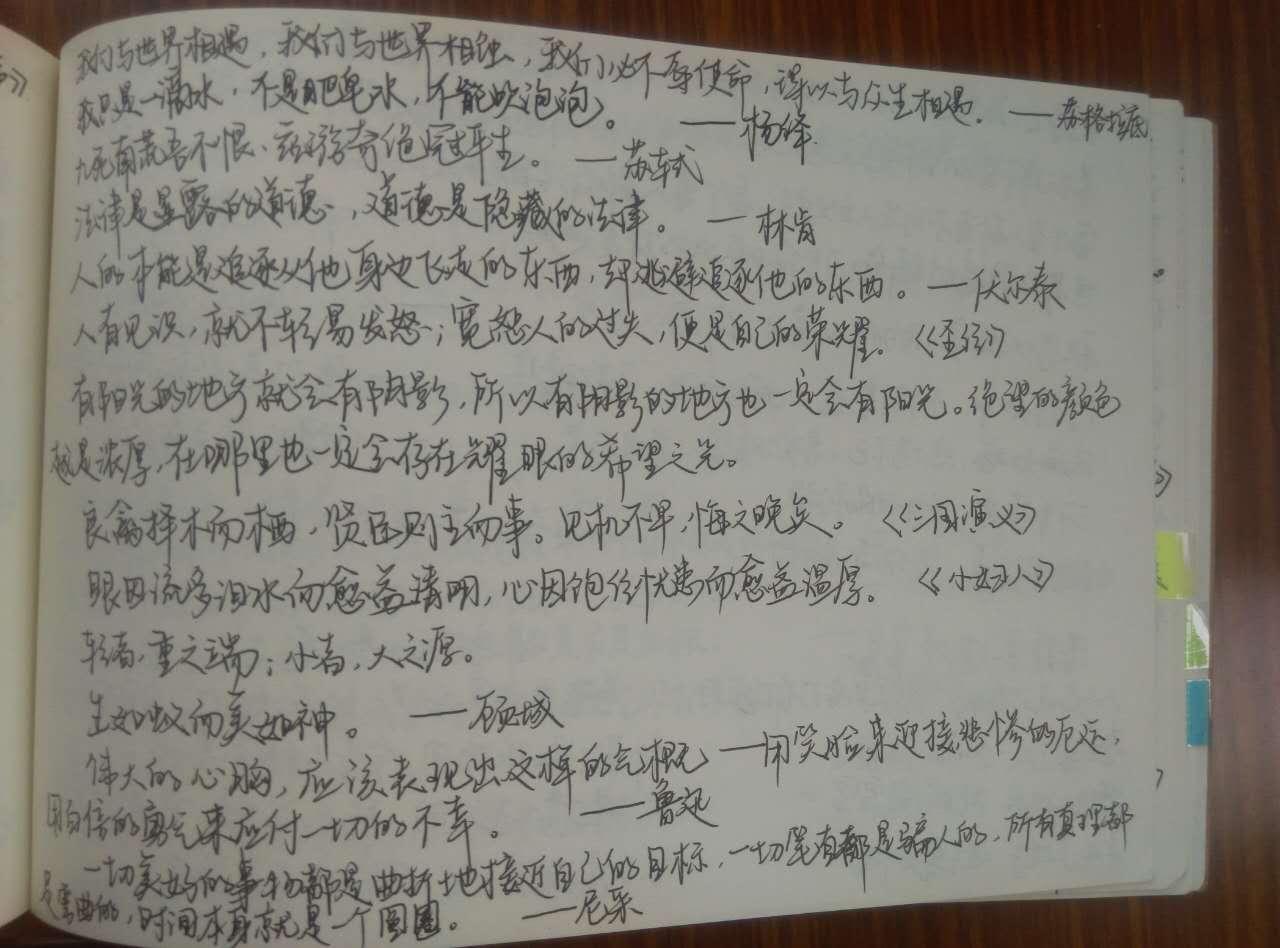 我们与世界相遇，我们与世界相蚀，我们必不辱使命，得以与众生相遇。 ——苏格拉底
我只是一滴水，不是肥皂水，不能吹泡泡。 ——杨绛
九死南荒吾不恨、兹游奇绝冠平生。 ——苏轼
法律是显露的道德，道德是隐藏的法律。 ——林肯
人的本能是追逐从他身边飞走的东西，却逃避追逐他的东西。——伏尔泰
人有见识，就不轻易发怒；宽恕人的过失，便是自己的荣耀。《圣经》
有阳光的地方就会有阴影，所以有阴影的地方也一定会有阳光。绝望的颜色
越是浓厚，在哪里也一定会存在耀眼的希望之光。
良禽择木而栖，贤臣则主而事。见机不早，悔之晚矣。《三国演义》
眼因流多泪水而愈益清明，心因饱经忧患而愈益温厚。《小妇人》
轻者，重之端；小者，大之源。
生如蚁而美如神。 ——顾城
伟大的心胸，应该表现出这样的气概——用笑脸来迎接悲惨的厄运，
用百倍的勇气来应付一切的不幸。 ——鲁迅
一切美好的事物都是曲折地接近自己的目标，一切笔直都是骗人的，所有真理都
是弯曲的，时间本身就是一个圆圈。 ——尼采